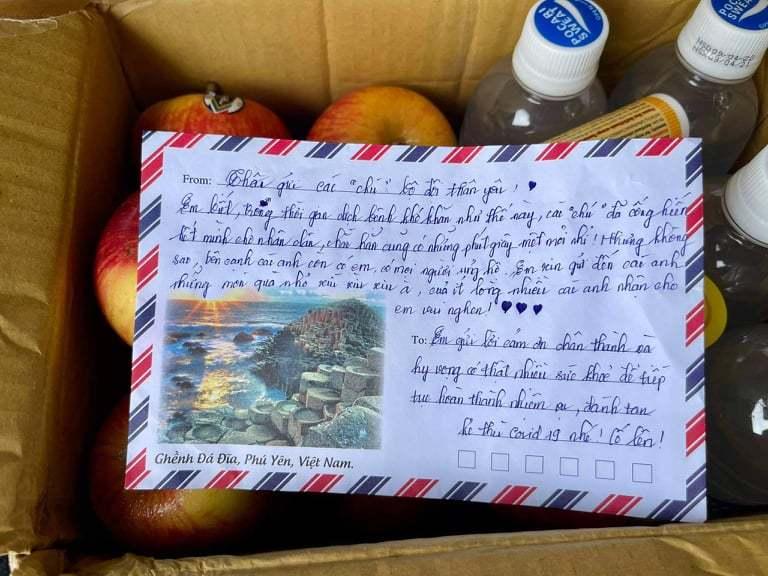 POCARI
SWEAT
POCARI
SWEAT
From: Thân gửi các "chú" bộ đội thân yêu! ♥
Em biết, trong thời gian dịch bệnh khó khăn như thế này, các "chú" đã cống hiến
hết mình cho nhân dân, chắc hẳn cũng có những phút giây mệt mỏi nhỉ! Nhưng không
sao, bên cạnh các anh còn có em, có mọi người ủng hộ. Em xin gửi đến các anh
những món quà nhỏ xíu xìu xiu ạ, quà ít lòng nhiều các anh nhận cho
em vui nghen! ♥ ♥ ♥
To: Em gửi lời cảm ơn chân thành và
hy vọng có thật nhiều sức khoẻ để tiếp
tục hoàn thành nhiệm vụ, đánh tan
kẻ thù Covid 19 nhé! Cố lên!
Ghềnh Đá Đĩa, Phú Yên, Việt Nam.